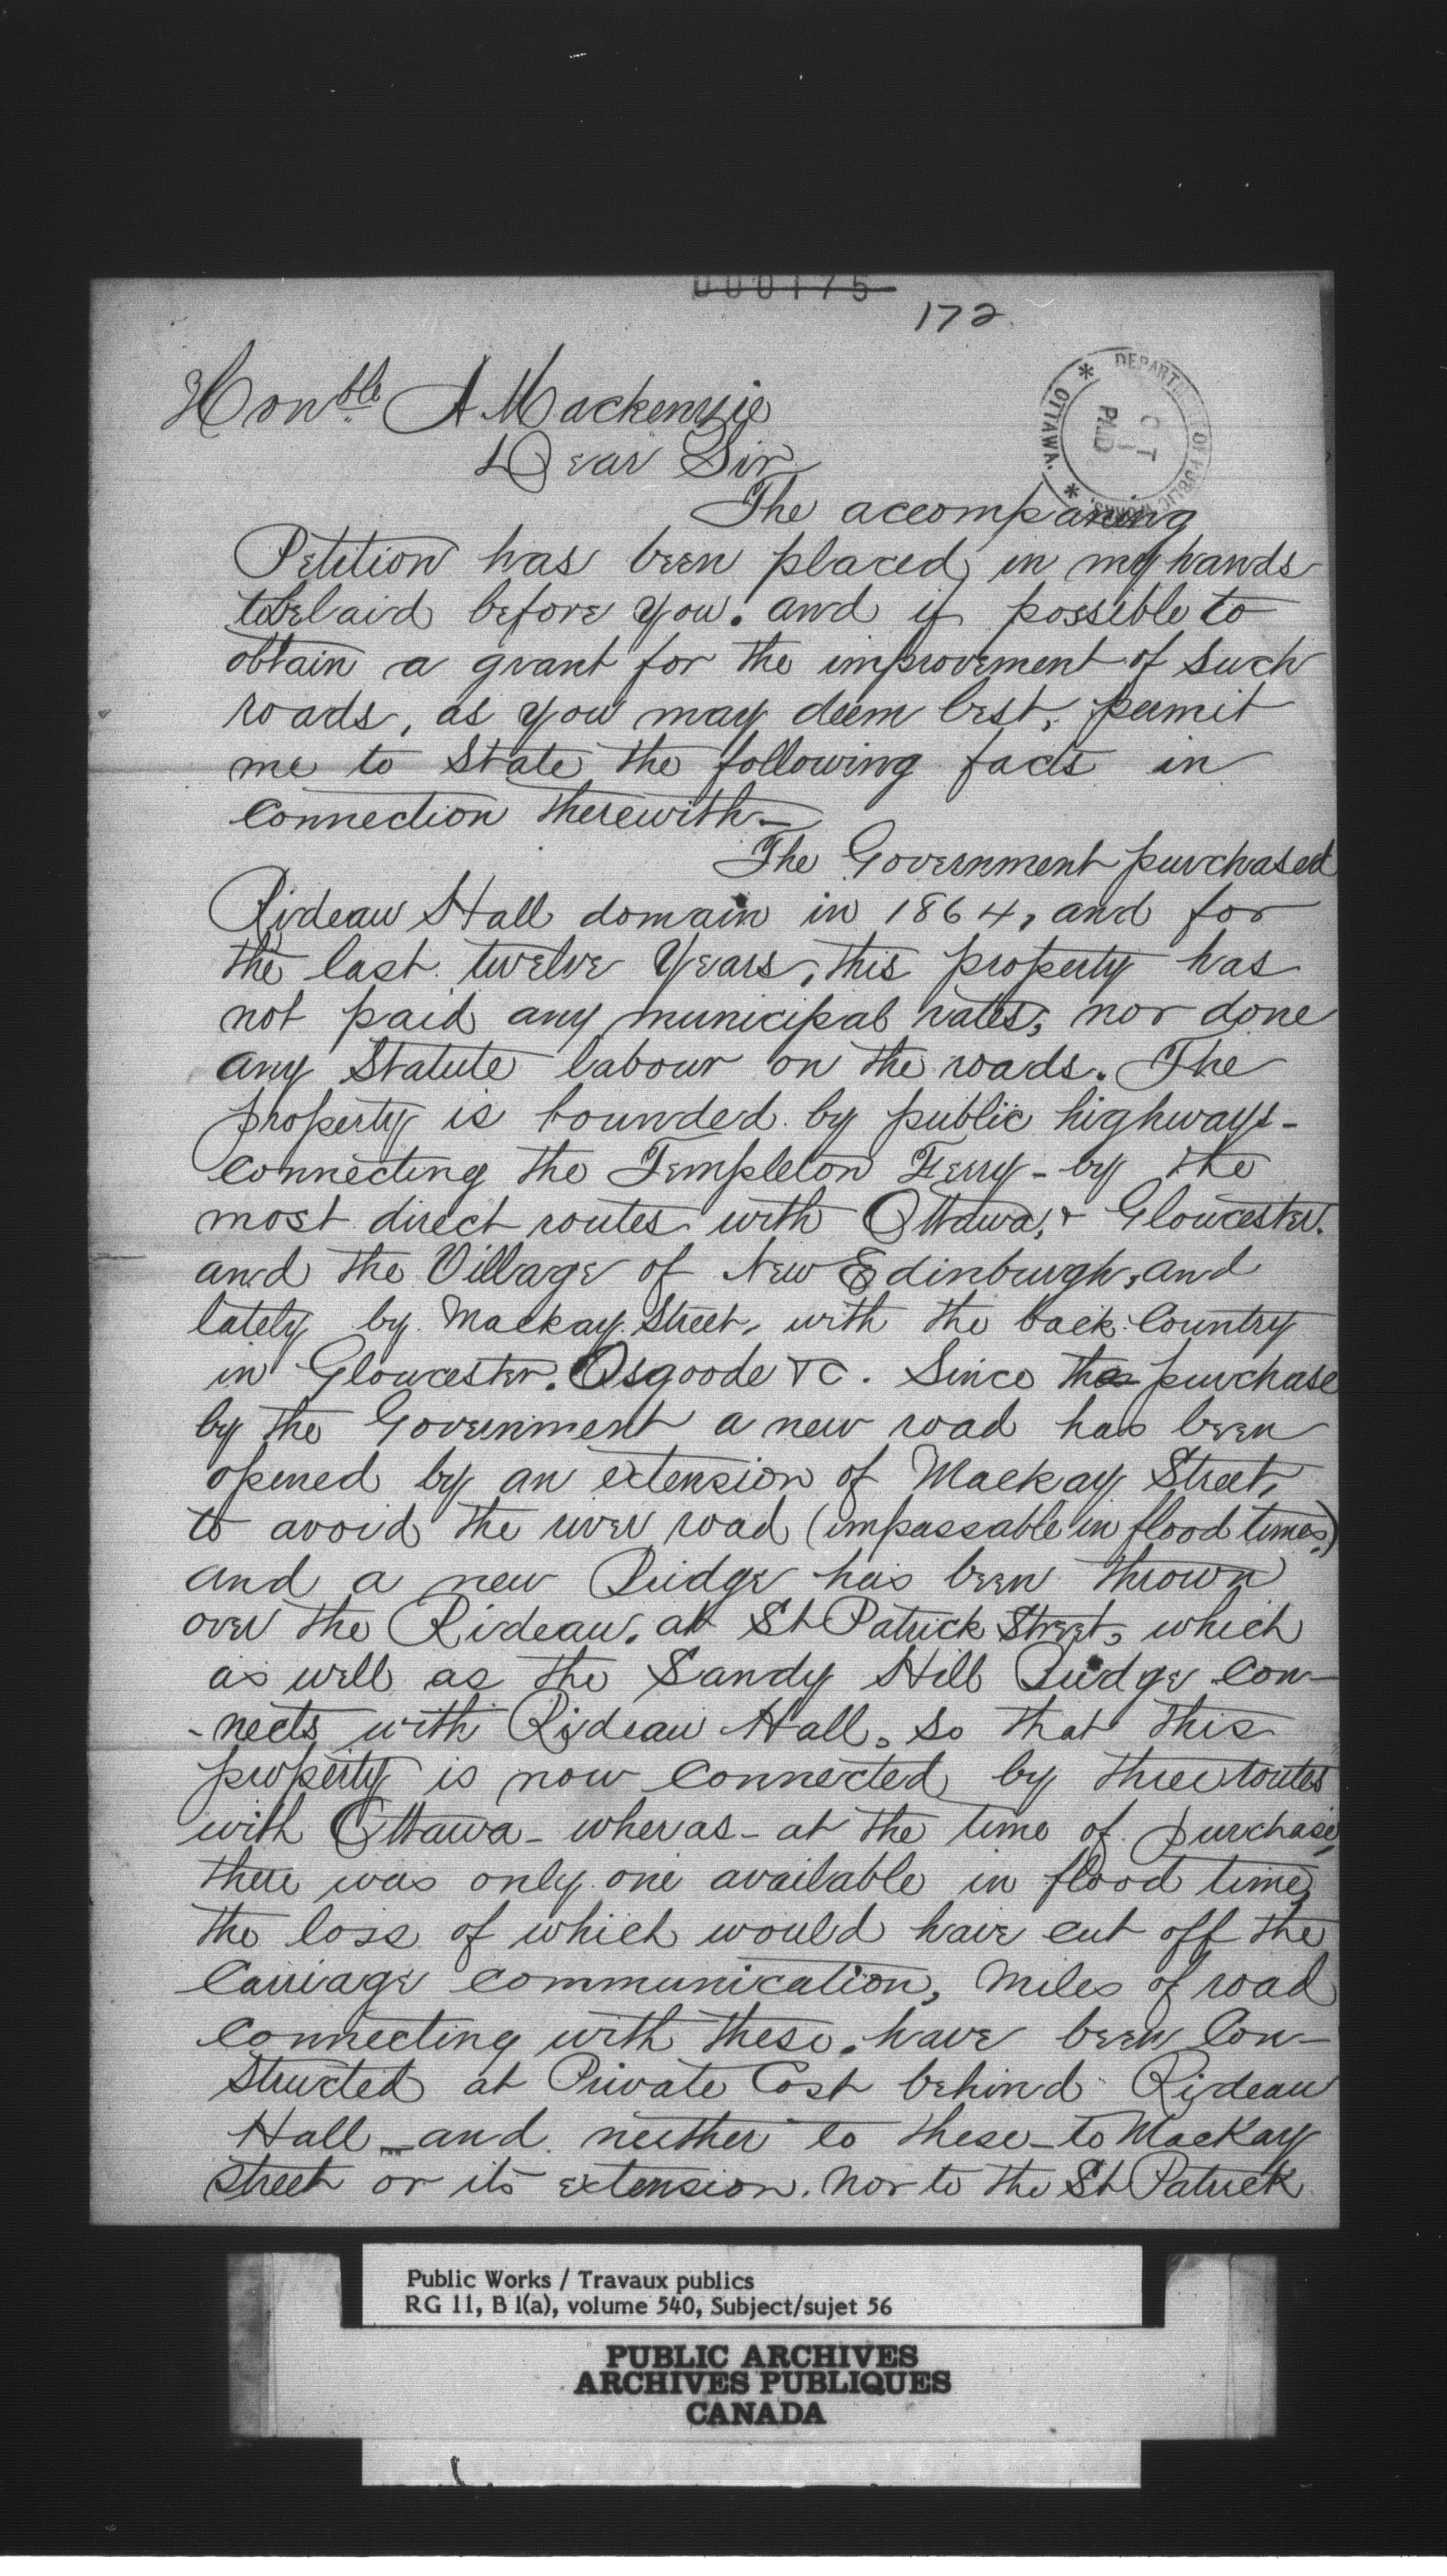 000175
172
DEPARTMENT OF PUBLIC WORKS. * OTTAWA. *
Honble A Mackenzie
Dear Sir
The accompaning
Petition has been placed in my hands
to be laid before you. and if possible to
obtain a grant for the improvement of such
roads, as you may deem best, permit
me to State the following facts in
connection therewith—
The Government purchased
Rideau Hall domain in 1864, and for
the last twelve Years, this property has
not paid any municipal rates, nor done
any Statute labour on the roads. The
property is bounded by public highways-
connecting the Templeton Ferry - by the
most direct routes with Ottawa, & Gloucester.
and the Village of New Edinburgh, and
lately by Mackay Street, with the back Country
in Gloucester. Osgoode &c. Since the purchase
by the Government a new road has been
opened by an extension of Mackay Street,
to avoid the river road (impassable in flood times)
and a new Bridge has been thrown
over the Rideau, at St Patrick Street, which
as well as the Sandy Hill Bridge con-
-nects with Rideau Hall, so that this
property is now connected by three routes
with Ottawa - wheras - at the time of purchase,
there was only one available in flood time,
the loss of which would have cut off the
Carriage communication, Miles of road
connecting with these, have been Con-
structed at Private Cost behind Rideau
Hall - and neither to these - to MacKay
street or its extension. nor to the St Patrick
Public Works / Travaux publics
RG 11, B 1(a), volume 540, Subject/sujet 56
PUBLIC ARCHIVES
ARCHIVES PUBLIQUES
CANADA